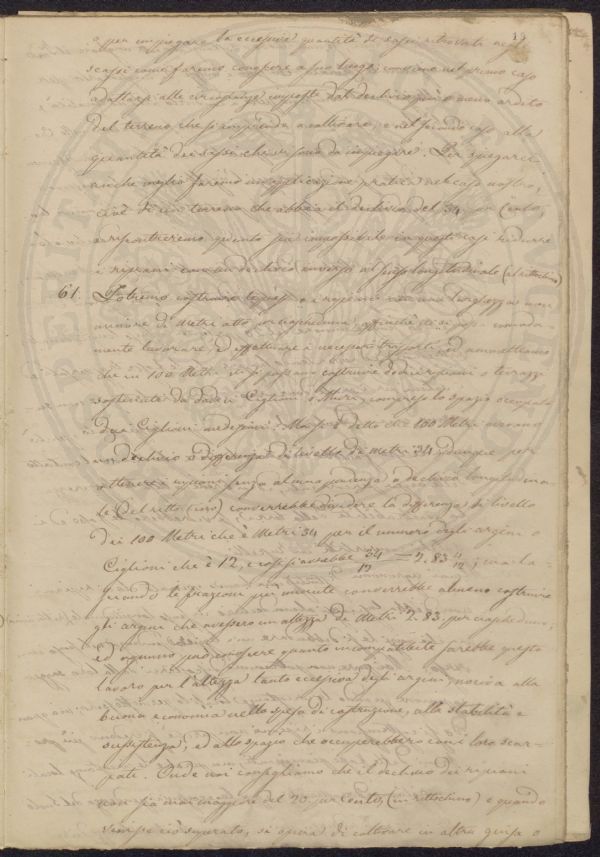 19
o per impiegare la eccessiva quantità di sassi ritrovata negli
scassi come faremo conoscere a suo luogo; conviene nel primo caso
adattarsi alle circostanze imposte dal declivio più o meno ardito
del terreno che si imprende a coltivare, e nel secondo caso alla
quantità dei sassi che si sono da impiegare. Per spiegarci
anche meglio faremo un'applicazione pratica nel caso nostro,
cioè di un terreno che abbia il declivio del 34 per cento,
e riscontreremo quanto sia impossibile in questi casi ridurre
i ripiani con un declivio inverso al longitudinale (al rittochino)
61. Potremo costruire i ripiani con una larghezza non
minore di Metri otto per ciascheduno, affinchè vi si possa comoda
mente lavorare, ed effettuare i necessari trasporti, ed ammettiamo
che in 100 Metri vi si possano costruire dodici ripiani o terrazzi
sostenute da dodici Ciglioni o Muri, compreso lo spazio occupato
dai Ciglioni medesimi. Ma si è detto che 100 Metri avevano
un declivio o differenza di livello di Metri 34, dunque per
ottenere i ripiani senza alcuna pendenza o declivio longitudina
le (del rittochino) converrebbe dividere la differenza di livello
dei 100 Metri che è Metri 34 per il numero degli argini o
Ciglioni che è 12, e così si avrebbe 34/12 = 2.83 4/12; ma la-
sciando le frazioni più minute converrebbe almeno costruire
gli argini che avessero un altezza di Metri 2.83. per ciascheduno;
ed ognuno può conoscere quanto incompatibile sarebbe questo
lavoro per l'altezza tanto eccessiva degli argini, nociva alla
buona economia nella spesa di costruzione, alla stabilità e
sussistenza, ed allo spazio che occuperebbero con le loro scar-
pate. Onde noi consigliamo che il declivio dei ripiani
non sia mai maggiore del 20. per cento, (in rittochino) e quando
venisse ciò superato, si opera di coltivare in altra guisa o